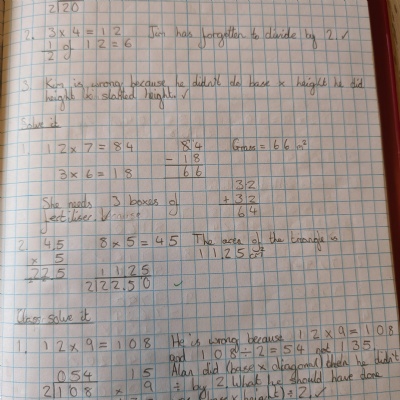 2 20
2. 3 x 4 = 12 Jim has forgotten to divide by 2. ✓
1/2 of 12 = 6
3. Kim is wrong because he didn't do base x height he did
height x slanted height. ✓
Solve it
1. 12 x 7 = 84 84 Grass = 66 m²
- 18
3 x 6 = 18 66
32
She needs 3 boxes of + 32
fertiliser. ✓ 64
2. 4.5 8 x 5 = 45 The area of the triangle is
x 5 11.25 cm²
22.5 11.25
2 22.50 ✓
Class solve it
1. 12 x 9 = 108 He is wrong because 12 x 9 = 108
and 108 ÷ 2 = 54 not 135.
054 15 Alan did (base x diagonal) then he didn't
2 108 x 9 ÷ by 2. What he should have done
height) ÷ 2. ✓